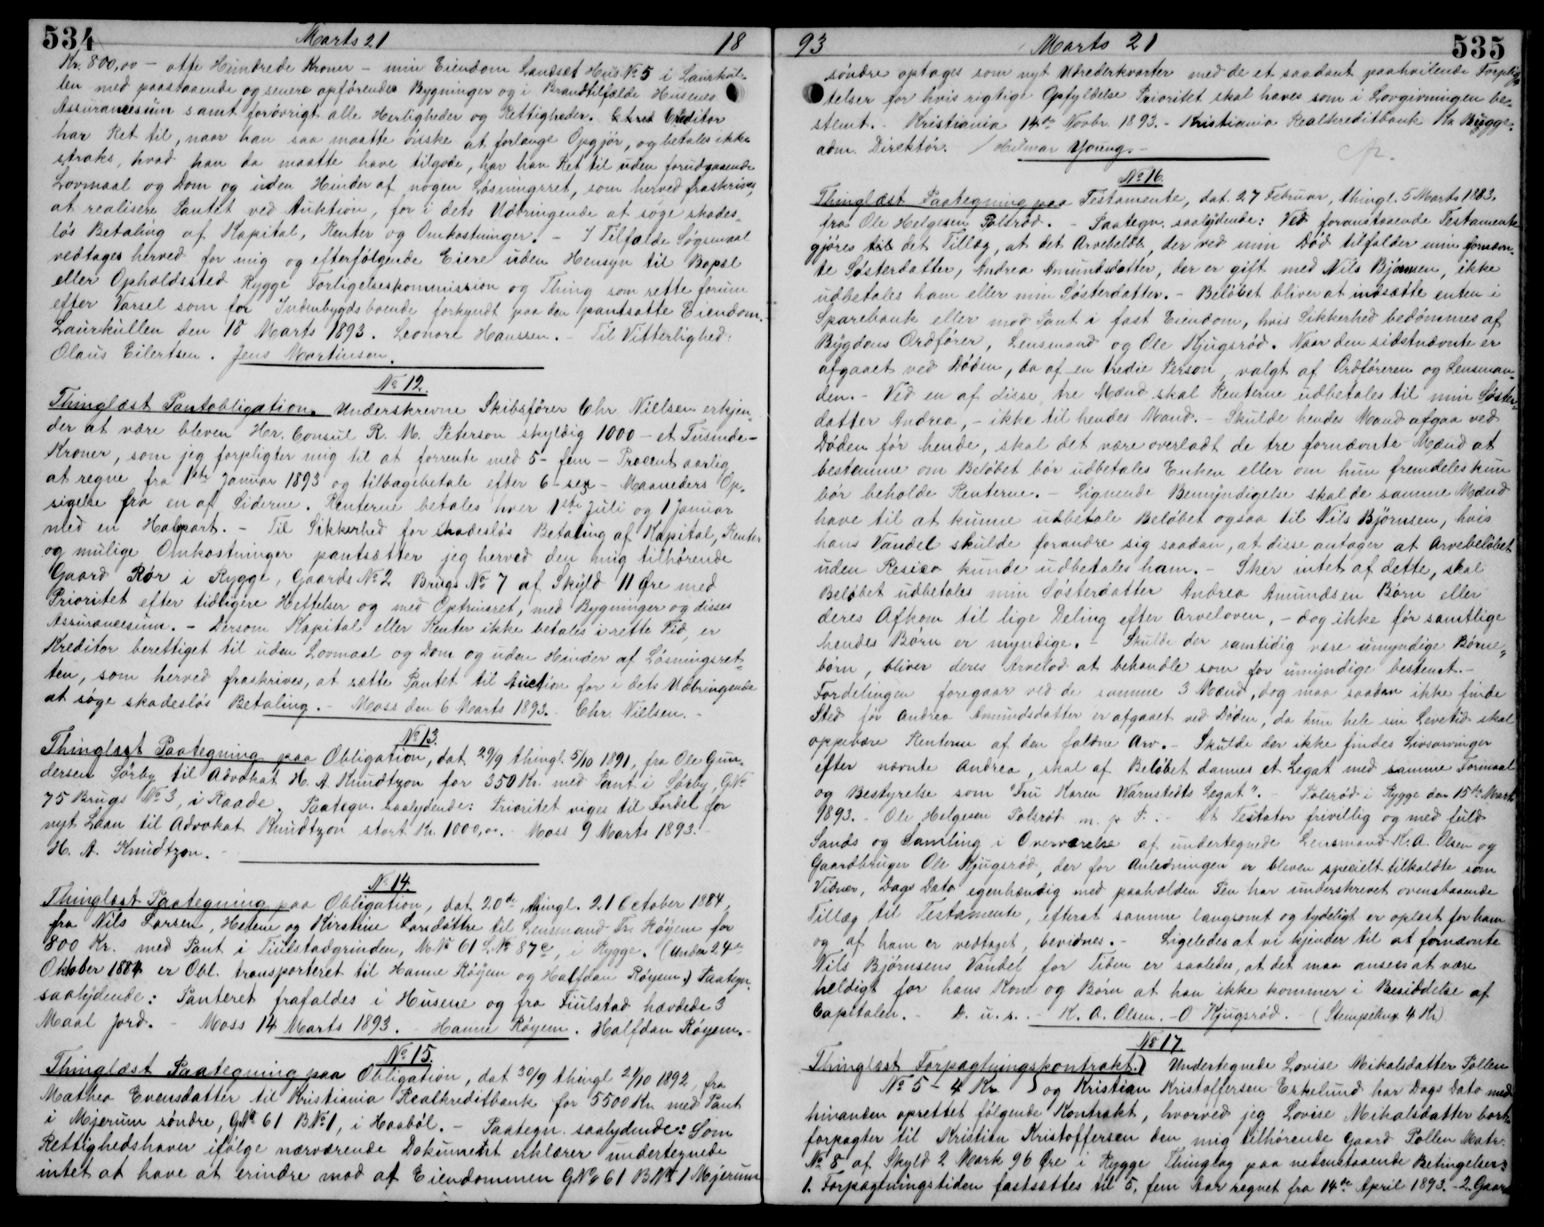 534 Marts 21 18
Kr. 800,00 - otte Hundrede Kroner - min Eiendom Landsat Hus № 5 i Laurkul-
len med paastaaende og senere opførendes Bygninger og i Brandtilfælde Husenes
Assurancesum samt forøvrigt alle Herligheder og Rettigheder. Creditor
har Ret til, naar han saa maatte ønske at forlange Opgjør, og betales ikke
straks, hvad han da maatte have tilgode, har han Ret til uden forudgaaende
Lovmaal og Dom og uden Hinder af nogen Løsningsret, som herved fraskrives,
at realisere Pantet ved Auktion, for i dets Udbringende at søge skades-
løs Betaling af Kapital, Renter og Omkostninger. - I Tilfælde Søgsmaal
vedtages herved for mig og efterfølgende Eiere uden Hensyn til Bopæl
eller Opholdssted Rygge Forligelseskommission og Thing som rette forum
efter Varsel som for Indenbygdsboende forkyndt paa den pantsatte Eiendom.
Laurkullen den 18 Marts 1893. Leonore Hanssen. - Til Vitterlighed:
Olaus Eilertsen. Jens Martinsen.
№ 12.
Thinglæst Pantobligation. Underskrevne Skibsfører Chr Nielsen erkjen-
der at være bleven Hr. Consul R. M. Peterson skyldig 1000 - et Tusinde -
Kroner, som jeg forpligter mig til at forrente med 5 - fem - Procent aarlig
at regne fra 1ste Januar 1893 og tilbagebetale efter 6 - sex - Maaneders Op-
sigelse fra en af Siderne. Renterne betales hver 1ste Juli og 1 Januar
med en Halvpart. - Til Sikkerhed for skadesløs Betaling af Kapital, Renter
og mulige Omkostninger pantsætter jeg herved den mig tilhørende
Gaard Rør i Rygge, Gaards № 2 Brugs № 7 af Skyld 11 Øre med
Prioritet efter tidligere Heftelser og med Optrinsret, med Bygninger og disses
Assurancesum. - Dersom Kapital eller Renter ikke betales i rette Tid, er
Kreditor berettiget til uden Lovmaal og Dom og uden Hinder af Løsningsret-
ten, som herved fraskrives, at sætte Pantet til Auction for i dets Udbringende
at søge skadesløs Betaling. - Moss den 6 Marts 1893. Chr. Nielsen. -
№ 13.
Thinglæst Paategning paa Obligation, dat 29/9 thingl 5/10 1891, fra Ole Gun-
dersen Sørby til Advokat H. A. Knudtzon for 350 Kr. med Pant i Sørby, G№
75 Brugs № 3, i Raade. Paategn. saalydende: Prioritet viges til Fordel for
nyt Laan til Advokat Knudtzon stort Kr. 1000,00. - Moss 9 Marts 1893. -
H. A. Knudtzon. -
№ 14.
Thinglæst Paategning paa Obligation, dat 20de, thingl. 21 October 1884,
fra Nils Larsen, Helene og Kirstine Larsdøttre til Lensmand Fr. Røyem for
800 Kr. med Pant i Tiulstadgrinden, M№ 61 L№ 87c, i Rygge. (Under 24de
Oktober 1884 er Obl. transporteret til Hanne Røyem og Halfdan Røyem.) Paategn.
saalydende: Panteret frafaldes i Husene og fra Tiulstad havdede 3
Maal Jord. - Moss 14 Marts 1893. - Hanne Røyem. Halfdan Røyem. -
№ 15.
Thinglæst Paategning paa Obligation, dat 30/9 thingl 2/10 1892, fra
Mathea Evensdatter til Kristiania Realkreditbank for 5500 Kr med Pant
i Mjerum søndre, G№ 61 B№ 1, i Haabøl. - Paategn. saalydende: Som
Rettighedshaver ifølge nærværende Dokument erklærer undertegnede
intet at have at erindre mod at Eiendommen G№ 61 B№ 1 Mjerum
93 Marts 21 535
søndre optages som nyt Udrederkvarter med de et saadant paahvilende Forplig-
telser for hvis rigtige Opfyldelse Prioritet skal haves som i Lovgivningen be-
stemt. - Kristiania 14de Novbr 1893. - Kristiania Realkreditbank Kr Bygge-
adm. Direktør. / Hilmar Young. -
№ 16.
Thinglæst Paategning paa Testamente, dat 27 Februar, thingl. 5 Marts 1883,
fra Ole Helgesen Polsrød. - Paategn. saalydende: Ved foranstaaende Testamente
gjøres det Tillæg, at det Arvebeløb, der ved min Død tilfalder min fornævn-
te Søsterdatter, Andrea Amundsdatter, der er gift med Nils Bjørnsen, ikke
udbetales ham eller min Søsterdatter. - Beløbet bliver at indsætte enten i
Sparebank eller mod Pant i fast Eiendom, hvis Sikkerhed bedømmes af
Bygdens Ordfører, Lensmand og Ole Kjugsrød. Naar den sidstnævnte er
afgaaet ved Døden, da af en tredie Person, valgt af Ordføreren og Lensman-
den. - Ved en af disse tre Mænd skal Renterne udbetales til min Søster-
datter Andrea, - ikke til hendes Mand. - Skulde hendes Mand afgaa ved
Døden før hende, skal det være overladt de tre fornævnte Mænd at
bestemme om Beløbet bør udbetales Enken eller om hun fremdeles kun
bør beholde Renterne. - Lignende Bemyndigelse skal de samme Mænd
have til at kunne udbetale Beløbet ogsaa til Nils Bjørnsen, hvis
hans Vandel skulde forandre sig saadan, at disse antager at Arvebeløbet
uden Resico kunde udbetales ham. - Sker intet af dette, skal
Beløbet udbetales min Søsterdatter Andrea Amundsen Børn eller
deres Afkom til lige Deling efter Arveloven, - dog ikke før samtlige
hendes Børn er myndige. - Skulde der samtidig være umyndige Børne-
børn, bliver deres Arvelod at behandle som for umyndige bestemt. -
Fordelingen foregaar ved de samme 3 Mænd, dog maa saadan ikke finde
Sted før Andrea Amundsdatter er afgaaet ved Døden, da hun hele sin Levetid skal
oppebære Renterne af den faldne Arv. - Skulde der ikke findes Livsarvinger
efter nævnte Andrea, skal af Beløbet dannes et Legat med samme Formaal
og Bestyrelse som "Fru Karen Wærnstedts Legat". - Polsrød i Rygge den 15de Marts
1893. - Ole Helgesen Polsrød m. p. P. - At Testator frivillig og med fuld
Sands og Samling i Overværelse af undertegnede Lensmand K. A. Olsen og
Gaardbruger Ole Kjugsrød, der for Anledningen er bleven specielt tilkaldte som
Vidner, Dags Dato egenhændig med paaholden Pen har underskrevet ovenstaaende
Tillæg til Testamente, efterat samme langsomt og tydeligt er oplæst for ham
og af ham er vedtaget, bevidnes. - Ligeledes at vi kjender til at fornævnte
Nils Bjørnsens Vandel for Tiden er saaledes, at det maa ansees at være
heldigt for hans Kone og Børn at han ikke kommer i Besiddelse af
Capitalen. - D. u. s. - K. A. Olsen. - O Kjugsrød. - (Stempelmp. 4 Kr)
№ 17.
Thinglæst Forpagtningskontrakt.) Undertegnede Lovise Mikalsdatter Pollen
№ 5 - 4 Kr ) og Kristian Kristoffersen Eskelund har Dags Dato med
hinanden oprettet følgende Kontrakt, hvorved jeg Lovise Mikalsdatter bort-
forpagter til Kristian Kristoffersen den mig tilhørende Gaard Pollen Matr.
№ 8 af Skyld 2 Mark 96 Øre i Rygge Thinglag paa nedenstaaende Betingelser:
1. Forpagtningstiden fastsættes til 5, fem Aar regnet fra 14de April 1893. - 2. Gaard